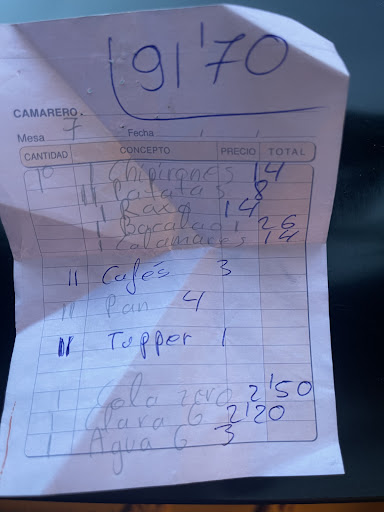 91'70
CAMARERO.
Mesa 7 Fecha / /
CANTIDAD CONCEPTO PRECIO TOTAL
1º 1 Chipirones 14
11 Patatas 8
1 Raxo 14
1 Bacalao 1 26
1 Calamares 14
11 Cafés 3
11 Pan 4
11 Tupper 1
1 Cola zero 2'50
1 Clara G 2'20
1 Agua G 3